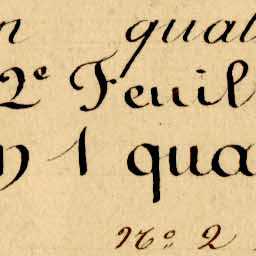 n quat
2e Feuil
n 1 qua
No 2